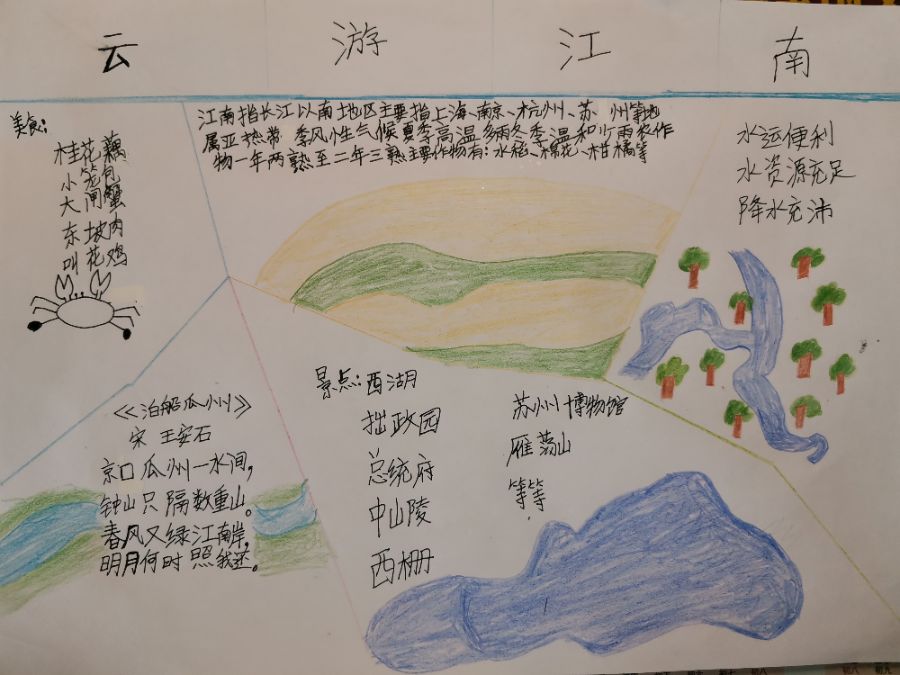 云游江南
江南指长江以南地区主要指上海、南京、杭州、苏州等地
属亚热带季风性气候夏季高温多雨冬季温和少雨农作
物一年两熟至二年三熟主要作物有:水稻、棉花、柑橘等
美食:
桂花藕
小笼包
大闸蟹
东坡肉
叫花鸡
水运便利
水资源充足
降水充沛
《泊船瓜州》
宋 王安石
京口瓜州一水间,
钟山只隔数重山。
春风又绿江南岸,
明月何时照我还。
景点:西湖
拙政园
总统府
中山陵
西栅
苏州博物馆
雁荡山
等等